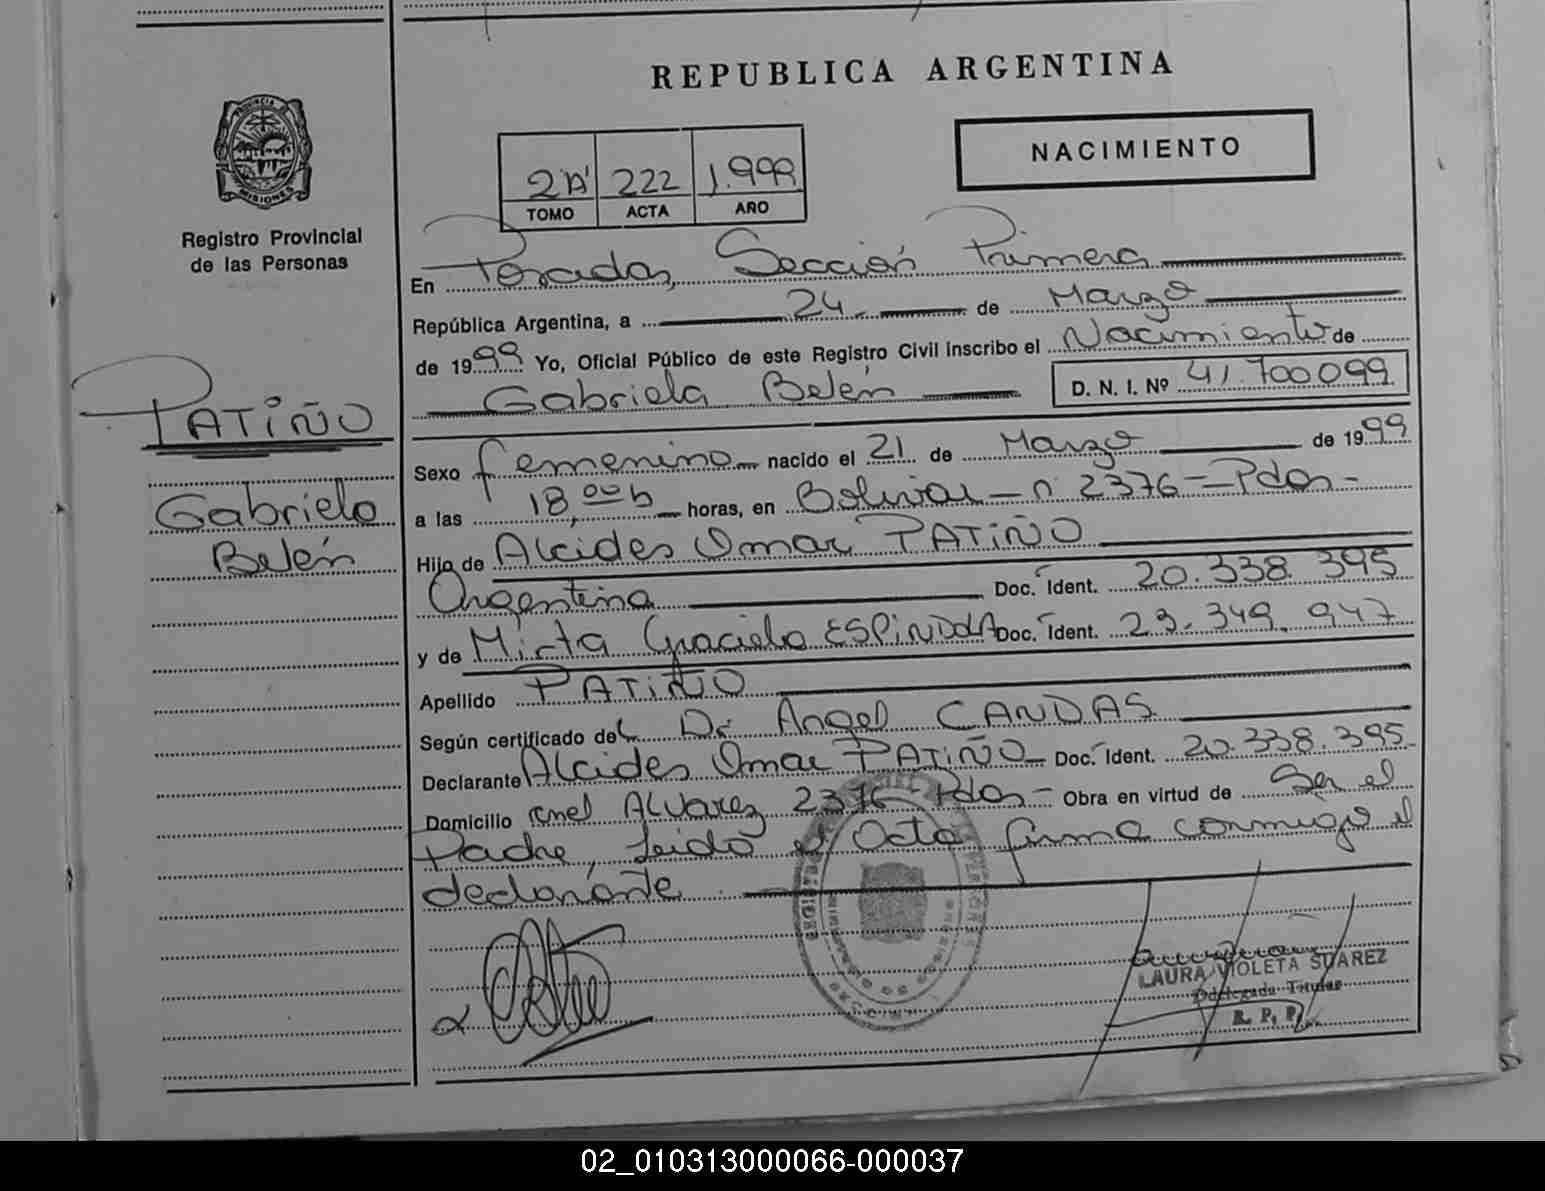 REPUBLICA ARGENTINA
PROVINCIA DE
MISIONES
Registro Provincial
de las Personas
NACIMIENTO
2'A' 222 1.999
TOMO ACTA AÑO
En Posadas, Sección Primera
República Argentina, a 24 de Marzo
de 1999 Yo, Oficial Público de este Registro Civil inscribo el Nacimiento de
Gabriela Belén D. N. I. Nº 41.700099
PATIÑO
Gabriela
Belén
Sexo femenino nacido el 21 de Marzo de 1999
a las 18,00 h horas, en Bolivar - nº 2376 - Pdas -
Hijo de Alcides Omar PATIÑO
Argentina Doc. Ident. 20.338.395
y de Mirta Graciela ESPINDOLA Doc. Ident. 23.349.947
Apellido PATIÑO
Según certificado del Dr. Angel CANDAS
Declarante Alcides Omar PATIÑO - Doc. Ident. 20.338.395 -
Domicilio ALVarez 2376 - Pdas - Obra en virtud de Ser el
Padre, leido el Acta firma conmigo el
declarante
LAURA VIOLETA SUAREZ
Delegada Titular
R. P. P.
02_010313000066-000037